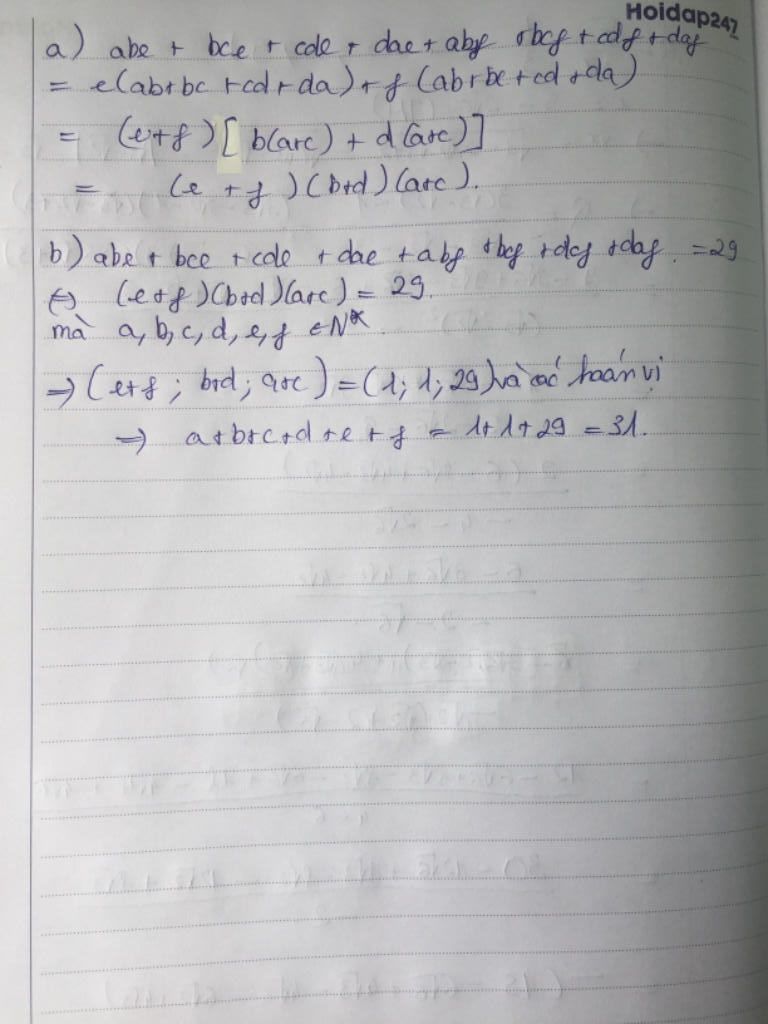 Hoidap247
a) abe + bce + cde + dae + abf + bcf + cdf + daf
= e(ab+bc+cd+da)+f(ab+bc+cd+da)
= (e+f)[b(a+c) + d(a+c)]
= (e+f)(b+d)(a+c).
b) abe + bce + cde + dae + abf + bcf + dcf + daf. =29
⇔ (e+f)(b+d)(a+c) = 29.
mà a,b,c,d,e,f ∈ N*
⇒ (e+f; b+d; a+c) = (1; 1; 29) và các hoán vị
⇒ a+b+c+d+e+f = 1+1+29 = 31.